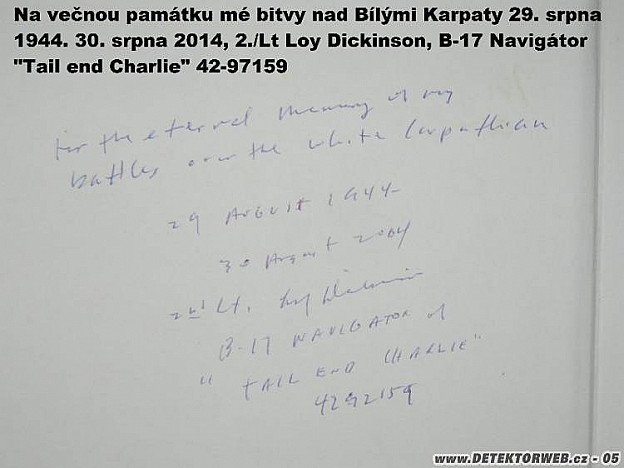 Na večnou památku mé bitvy nad Bílými Karpaty 29. srpna
1944. 30. srpna 2014, 2./Lt Loy Dickinson, B-17 Navigátor
"Tail end Charlie" 42-97159
For the eternal memory of my
battles over the white Carpathian
29 AUGUST 1944
30 August 2004
2nd Lt. Loy Dickinson
B-17 NAVIGATOR of
" TAIL END CHARLIE"
4292159
www.DETEKTORWEB.cz - 05